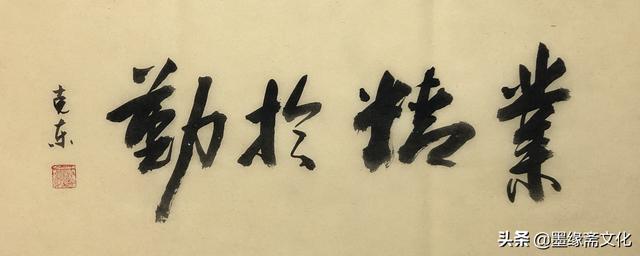 業精於勤
克东
头条 @墨缘斋文化